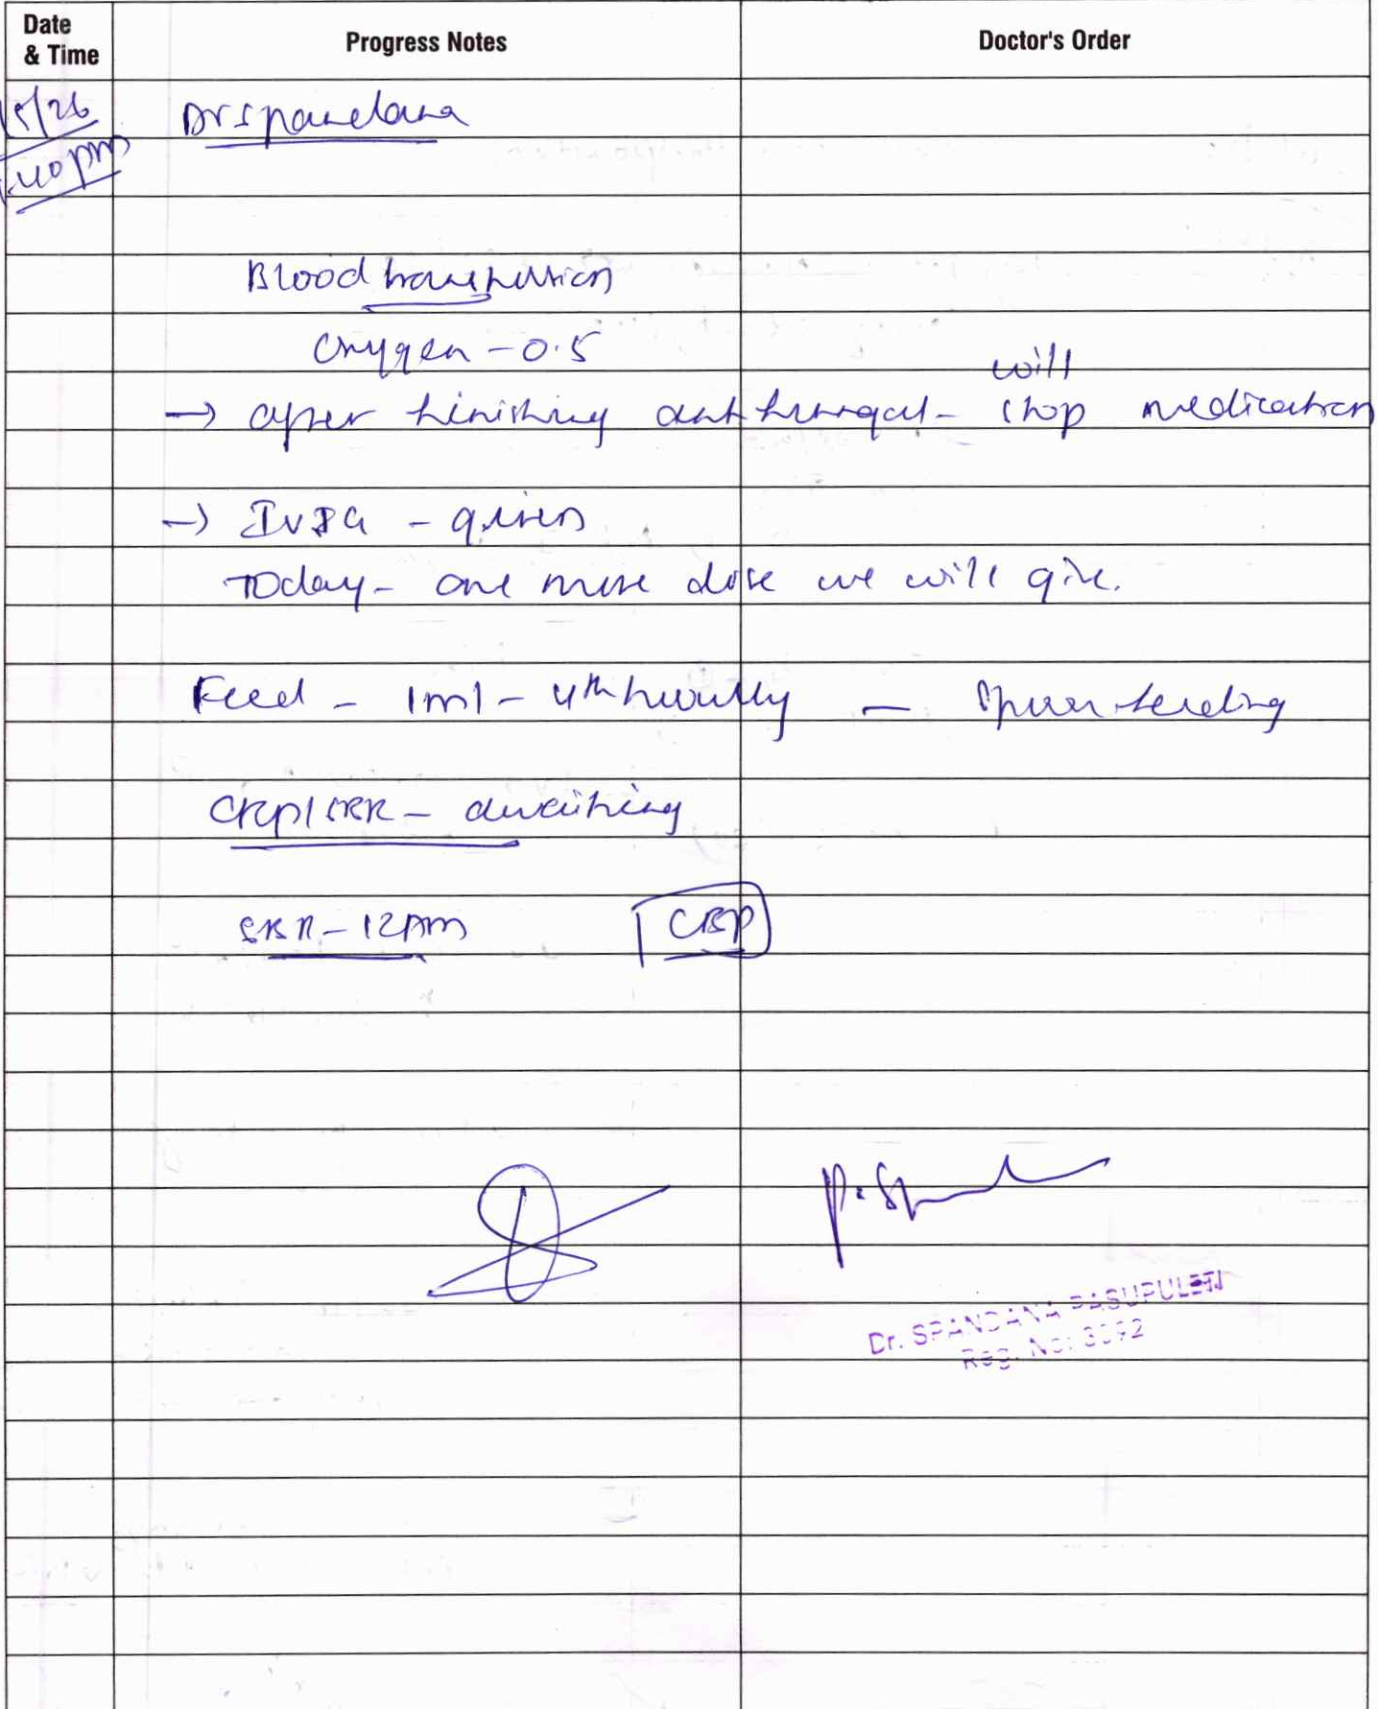 Date & Time
Progress Notes
Doctor's Order
5/26
40 pm
Dr Spandana
Blood transfusion
Oxygen - 0.5
will
→ after finishing antifungal - stop medication
→ IVIG - given
Today - one more dose we will give.
Feed - 1ml - 4th hourly - spoon feeding
CRP/SBR - awaiting
SBR - 12pm CBP
P. Sp
Dr. SPANDANA PASUPULETI
Reg. No: 3092